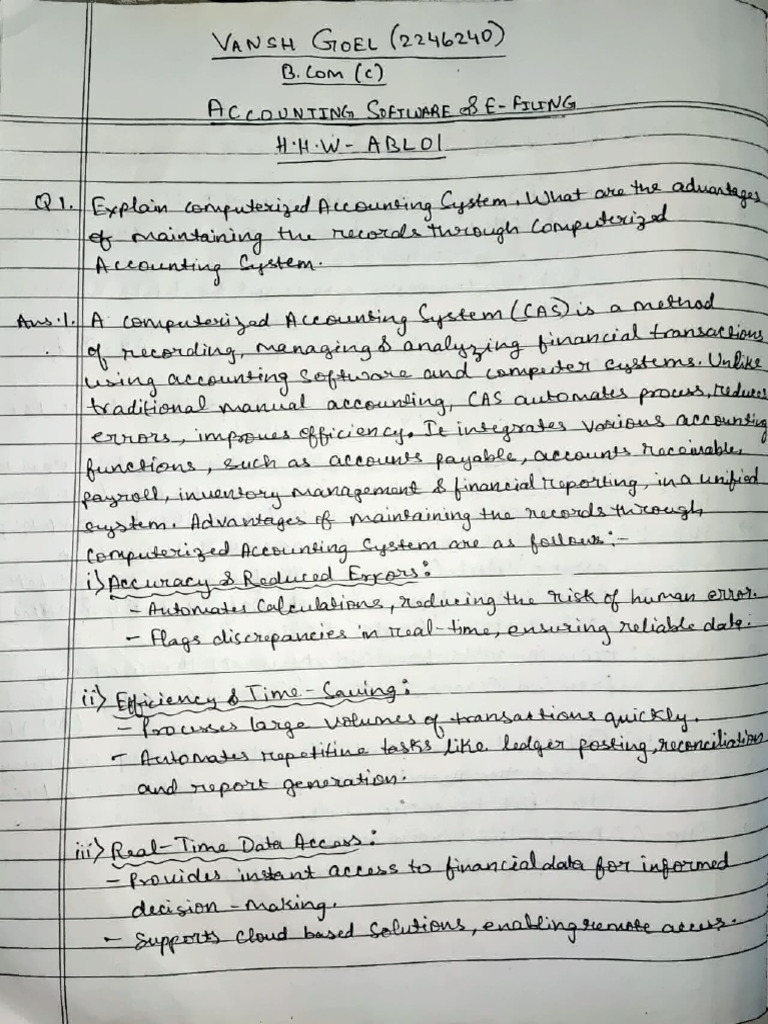 VANSH GOEL (2246240)
B.Com (C)
ACCOUNTING SOFTWARE & E-FILING
H.H.W - ABL01
Q1. Explain computerized Accounting System. What are the advantages
of maintaining the records through Computerized
Accounting System.
Ans:1. A computerized Accounting System (CAS) is a method
of recording, managing & analyzing financial transactions
using accounting software and computer systems. Unlike
traditional manual accounting, CAS automates process, reduces
errors, improves efficiency. It integrates various accounting
functions, such as accounts payable, accounts receivable,
payroll, inventory management & financial reporting, in a unified
system. Advantages of maintaining the records through
Computerized Accounting System are as follows:-
i) Accuracy & Reduced Errors:
- Automates Calculations, reducing the risk of human error.
- Flags discrepancies in real-time, ensuring reliable data.
ii) Efficiency & Time-Saving:
- Processes large volumes of transactions quickly.
- Automates repetitive tasks like ledger posting, reconciliation
and report generation.
iii) Real-Time Data Access:
- Provides instant access to financial data for informed
decision-making.
- Supports cloud based solutions, enabling remote access.